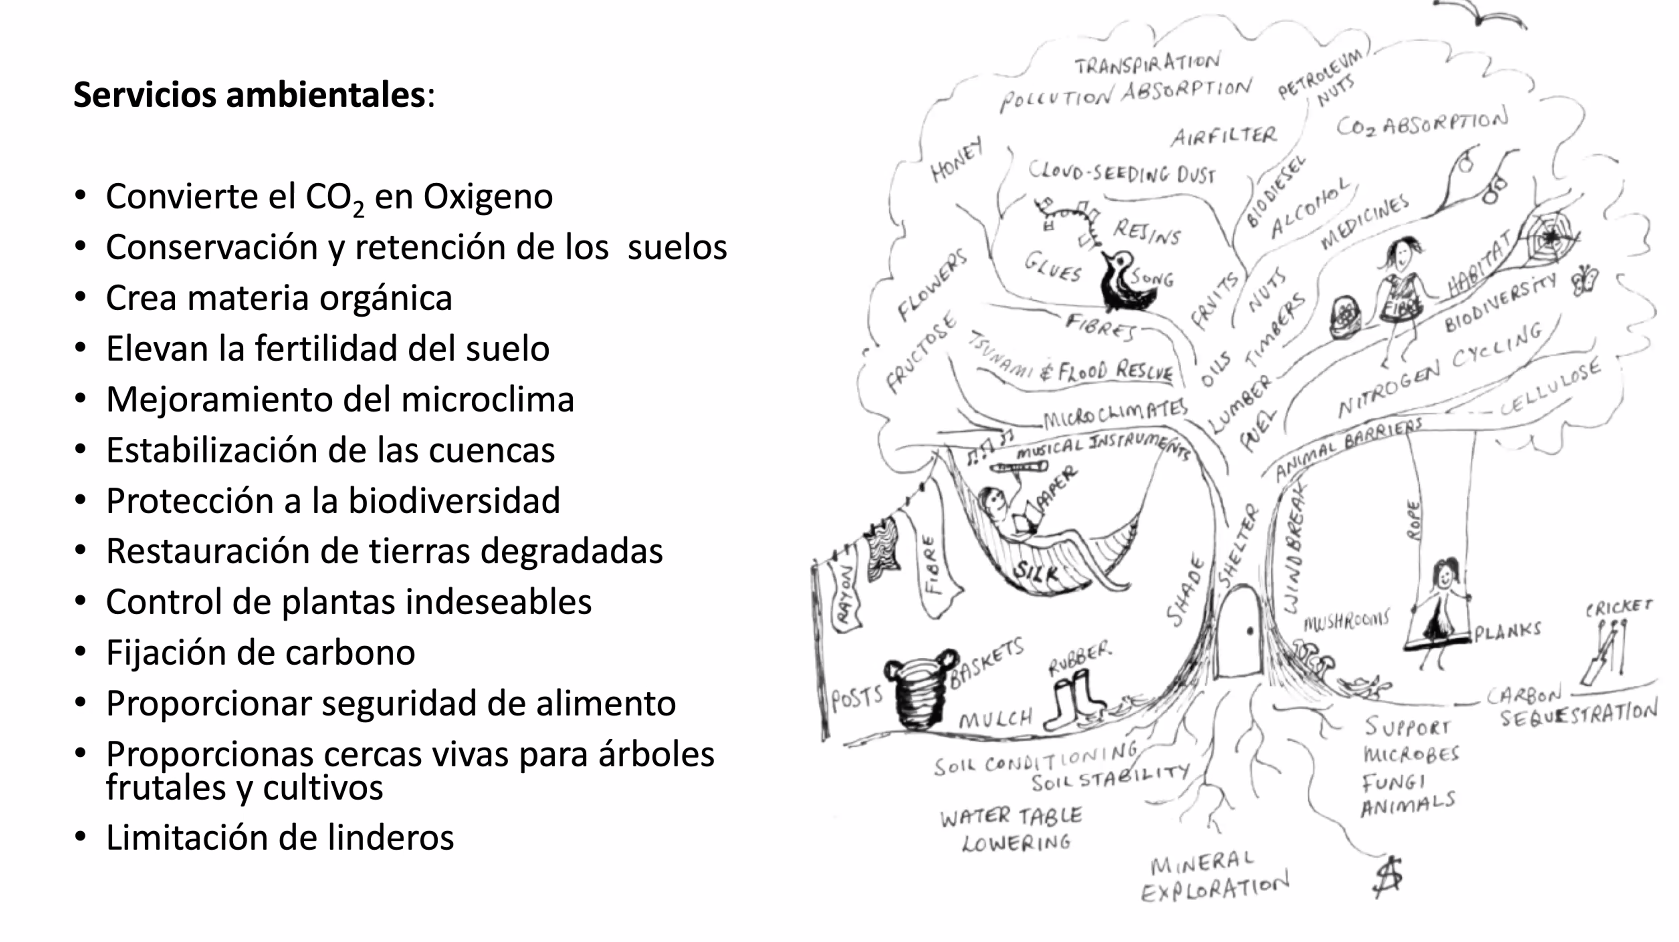 Servicios ambientales:
• Convierte el CO₂ en Oxigeno
• Conservación y retención de los  suelos
• Crea materia orgánica
• Elevan la fertilidad del suelo
• Mejoramiento del microclima
• Estabilización de las cuencas
• Protección a la biodiversidad
• Restauración de tierras degradadas
• Control de plantas indeseables
• Fijación de carbono
• Proporcionar seguridad de alimento
• Proporcionas cercas vivas para árboles
frutales y cultivos
• Limitación de linderos
TRANSPIRATION
POLLUTION ABSORPTION
PETROLEUM
NUTS
AIRFILTER
CO₂ ABSORPTION
HONEY
CLOUD-SEEDING DUST
BIODIESEL
ALCOHOL
MEDICINES
RESINS
GLUES
SONG
FLOWERS
FRUITS
NUTS
HABITAT
FIBRE
BIODIVERSITY
FIBRES
TIMBERS
FRUCTOSE
TSUNAMI & FLOOD RESCUE
OILS
NITROGEN CYCLING
LUMBER
CELLULOSE
MICROCLIMATES
FUEL
MUSICAL INSTRUMENTS
ANIMAL BARRIERS
PAPER
ROPE
SHELTER
WINDBREAK
SILK
FIBRE
RAYON
SHADE
MUSHROOMS
CRICKET
PLANKS
BASKETS
RUBBER
POSTS
MULCH
CARBON
SEQUESTRATION
SOIL CONDITIONING
SOIL STABILITY
SUPPORT
MICROBES
FUNGI
ANIMALS
WATER TABLE
LOWERING
MINERAL
EXPLORATION
$